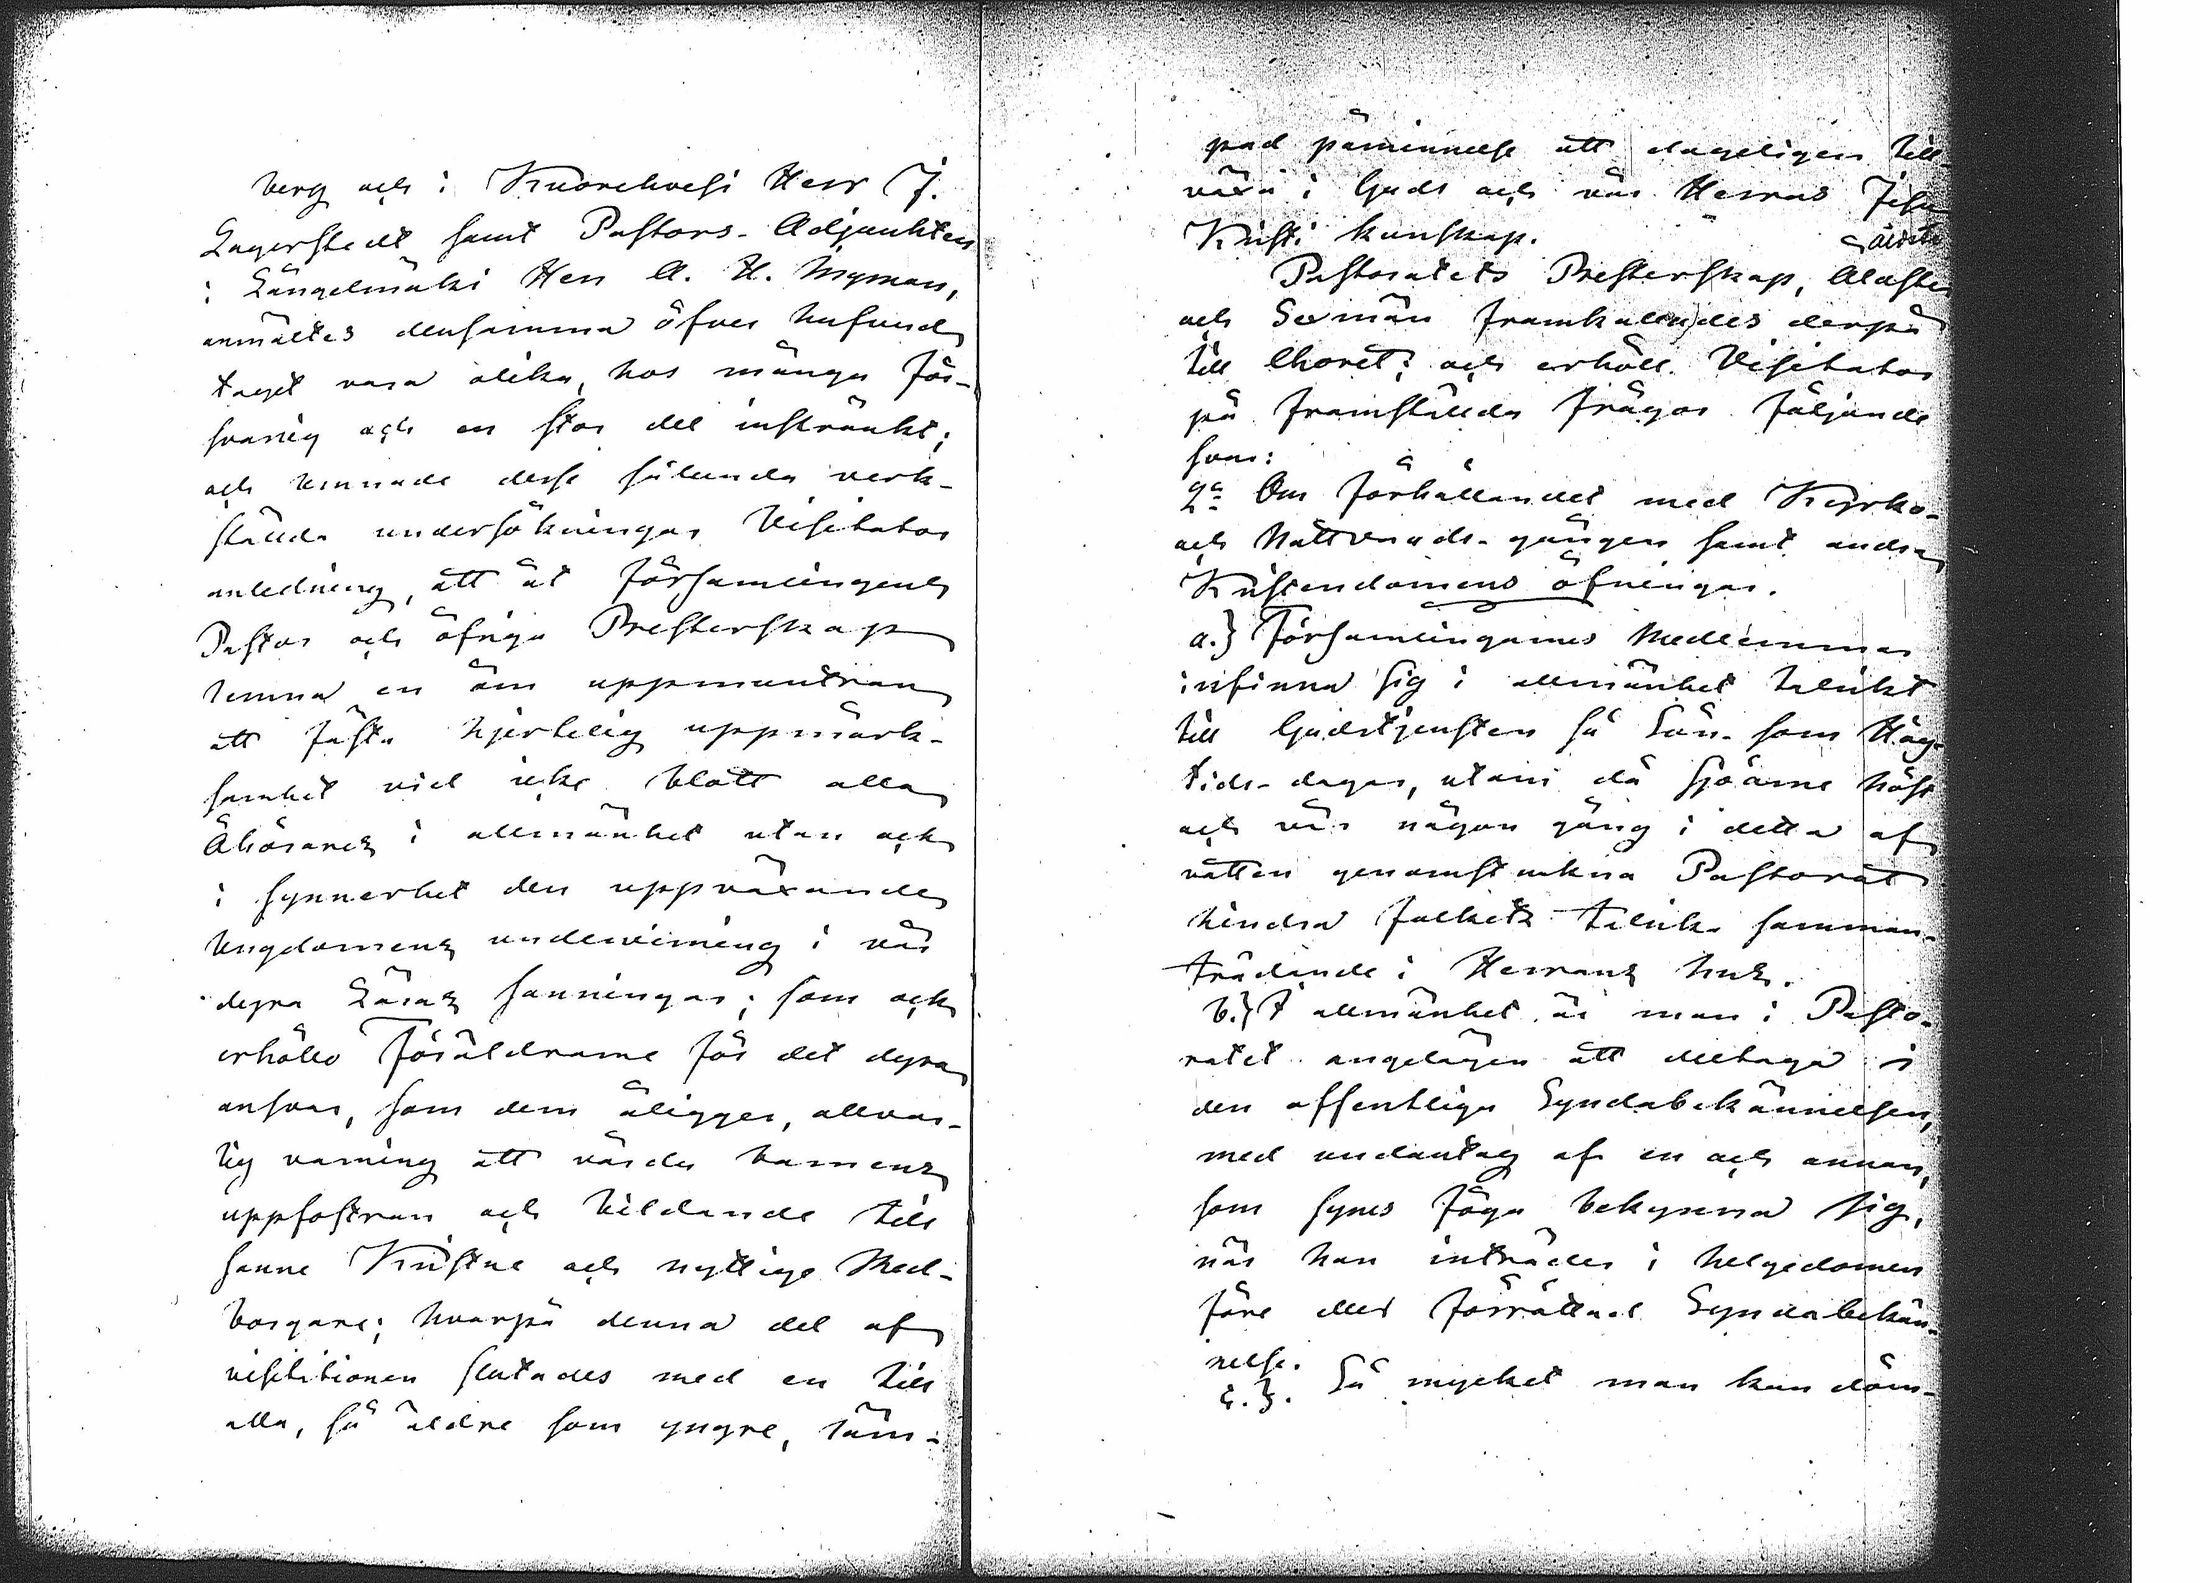 berg och i Kuorehvesi Herr J.
Lagerstedt samt Pastors-Adjunkten
i Längelmäki Herr A. H. Nyman,
anmältes densamma öfver hufvud
taget vara olika, hos många för-
svarlig och en stor del inskränkt;
och lemnade desse sålunda verk-
stälda undersökningar Visitator
anledning, att åt Församlingens
Pastor och öfriga Presterskap
lemna en öm uppmuntran
att fästa hjertelig uppmärk-
samhet vid icke blott alla
Åhörares i allmänhet utan ock
i synnerhet den uppväxande
Ungdomens undervisning i vår
dyra Läras sanningar; som ock
erhöllo Föräldrarne för det dyra
ansvar, som dem åligger, allvar-
lig varning att vårda barnens
uppfostran och bildande till
sanne Kristne och nyttige Med-
borgare; hvarpå denna del af
visititionen slutades med en till
alla, så äldre som yngre, läm-
pad påminnelse att dageligen till-
växa i Guds och vår Herras Jesu
Kristi kunskap.
Pastoratets Presterskap,
och Sexmän framkallades derpå
till Choret; och erhöll Visitator
på framstälda frågor följande
svar:
2a Om förhållandet med Kyrko-
och Nattvards-gången samt andra
Kristendomens öfningar.
a.) Församlingarnes Medlemmar
infinna sig i allmänhet talrikt
till Gudstjensten så Sön- som Hög-
tids-dagar, utom då sjöarne höst
och vår någon gång i detta af
vatten genomskurna Pastorat
hindra folkets talrika samman-
trädande i Herrans hus.
b.) I allmänhet är man i Pasto-
ratet angelägen att deltaga i
den offentliga Syndabekännelsen,
med undantag af en och annan,
som synes föga bekymra sig,
när han inträder i helgedomen
före eller förrättad Syndabekän-
nelse.
c.) Så mycket man kan döm-